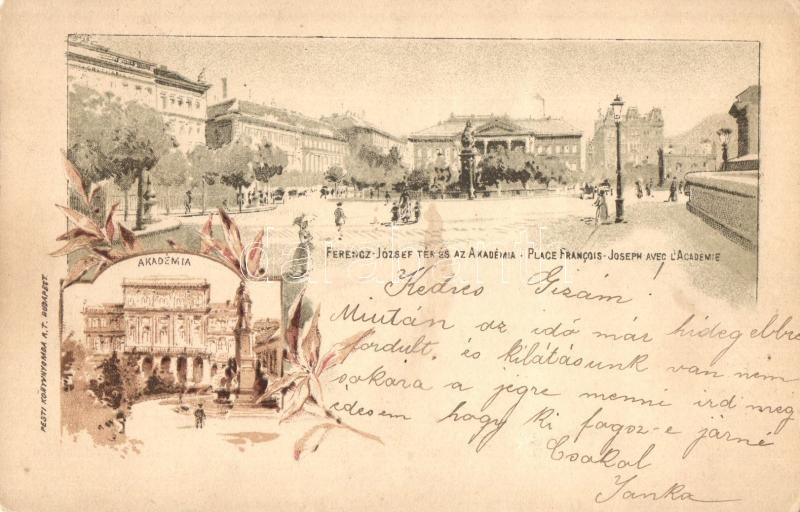 FERENCZ-JÓZSEF TÉR ÉS AZ AKADÉMIA · PLACE FRANÇOIS-JOSEPH AVEC L'ACADÉMIE
AKADÉMIA
PESTI KÖNYVNYOMDA R.T. BUDAPEST
Kedves Gizám!
Miután az idő már hidegebbre
fordult, és kilátásunk van nem
sokára a jégre menni ird meg
édesem hogy ki fogsz-e járni
Csókol
Janka
darabanth